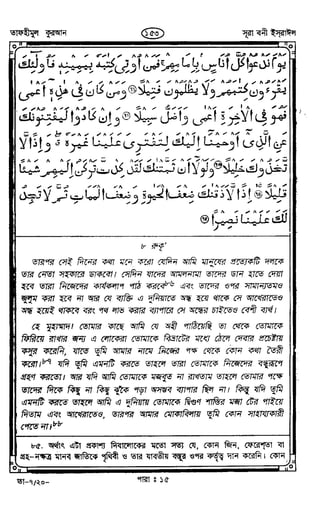 তাফহীমুল কুরআন
১৫৩
সূরা বনী ইসরাঈল
يَوْمَ نَدْعُوا كُلَّ أُنَاسٍ بِإِمَامِهِمْ ۚ فَمَنْ أُوتِيَ كِتٰبَهُ بِيَمِينِهِ فَأُولٰئِكَ
يَقْرَءُونَ كِتٰبَهُمْ وَلَا يُظْلَمُونَ فَتِيلًا ۝ وَمَنْ كَانَ فِي هٰذِهِ أَعْمٰى
فَهُوَ فِي الْآخِرَةِ أَعْمٰى وَأَضَلُّ سَبِيلًا ۝ وَإِنْ كَادُوا لَيَفْتِنُونَكَ
عَنِ الَّذِي أَوْحَيْنَا إِلَيْكَ لِتَفْتَرِيَ عَلَيْنَا غَيْرَهُ ۖ وَإِذًا لَّا
تَّخَذُوكَ خَلِيلًا ۝ وَلَوْلَا أَنْ ثَبَّتْنٰكَ لَقَدْ كِدْتَّ تَرْكَنُ إِلَيْهِمْ شَيْئًا
قَلِيلًا ۝ إِذًا لَّأَذَقْنٰكَ ضِعْفَ الْحَيٰوةِ وَضِعْفَ الْمَمَاتِ ثُمَّ لَا تَجِدُ
لَكَ عَلَيْنَا نَصِيرًا ۝
৮ রুকূ'
তারপর সেই দিনের কথা মনে করো যেদিন আমি মানুষের প্রত্যেকটি দলকে
তার নেতা সহকারে ডাকবো। সেদিন যাদের আমলনামা তাদের ডান হাতে দেয়া
হবে তারা নিজেদের কার্যকলাপ পাঠ করবে৮৬ এবং তাদের ওপর সামান্যতমও
জুলুম করা হবে না আর যে ব্যক্তি এ দুনিয়াতে অন্ধ হয়ে থাকে সে আখেরাতেও
অন্ধ হয়েই থাকবে বরং পথ লাভ করার ব্যাপারে সে অন্ধের চাইতেও বেশী ব্যর্থ।
হে মুহাম্মাদ! তোমার কাছে আমি যে অহী পাঠিয়েছি তা থেকে তোমাকে
ফিরিয়ে রাখার জন্য এ লোকেরা তোমাকে বিভ্রাটের মধ্যে ঠেলে দেবার প্রচেষ্টায়
কসুর করেনি, যাতে তুমি আমার নামে নিজের পক্ষ থেকে কোন কথা তৈরী
করো।৮৭ যদি তুমি এমনটি করতে তাহলে তারা তোমাকে নিজেদের বন্ধুরূপে
গ্রহণ করতো। আর যদি আমি তোমাকে মজবুত না রাখতাম তাহলে তোমার পক্ষে
তাদের দিকে কিছু না কিছু ঝুঁকে পড়া অসম্ভব ব্যাপার ছিল না। কিন্তু যদি তুমি
এমনটি করতে তাহলে আমি এ দুনিয়ায় তোমাকে দ্বিগুণ শাস্তির মজা টের পাইয়ে
দিতাম এবং আখেরাতেও, তারপর আমার মোকাবিলায় তুমি কোন সাহায্যকারী
পেতে না।৮৮
৮৫. অর্থাৎ এটা প্রকাশ্য দিবালোকের মতো সত্য যে, কোন জিন, ফেরেশতা বা
গ্রহ-নক্ষত্র মানব জাতিকে পৃথিবী ও তার যাবতীয় বস্তুর ওপর কর্তৃত্ব দান করেনি। কোন
তা-৭/২০-
পারা : ১৫